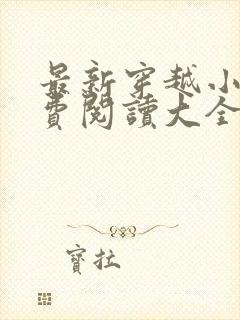 最新穿越小
費閱讀大全
寶拉